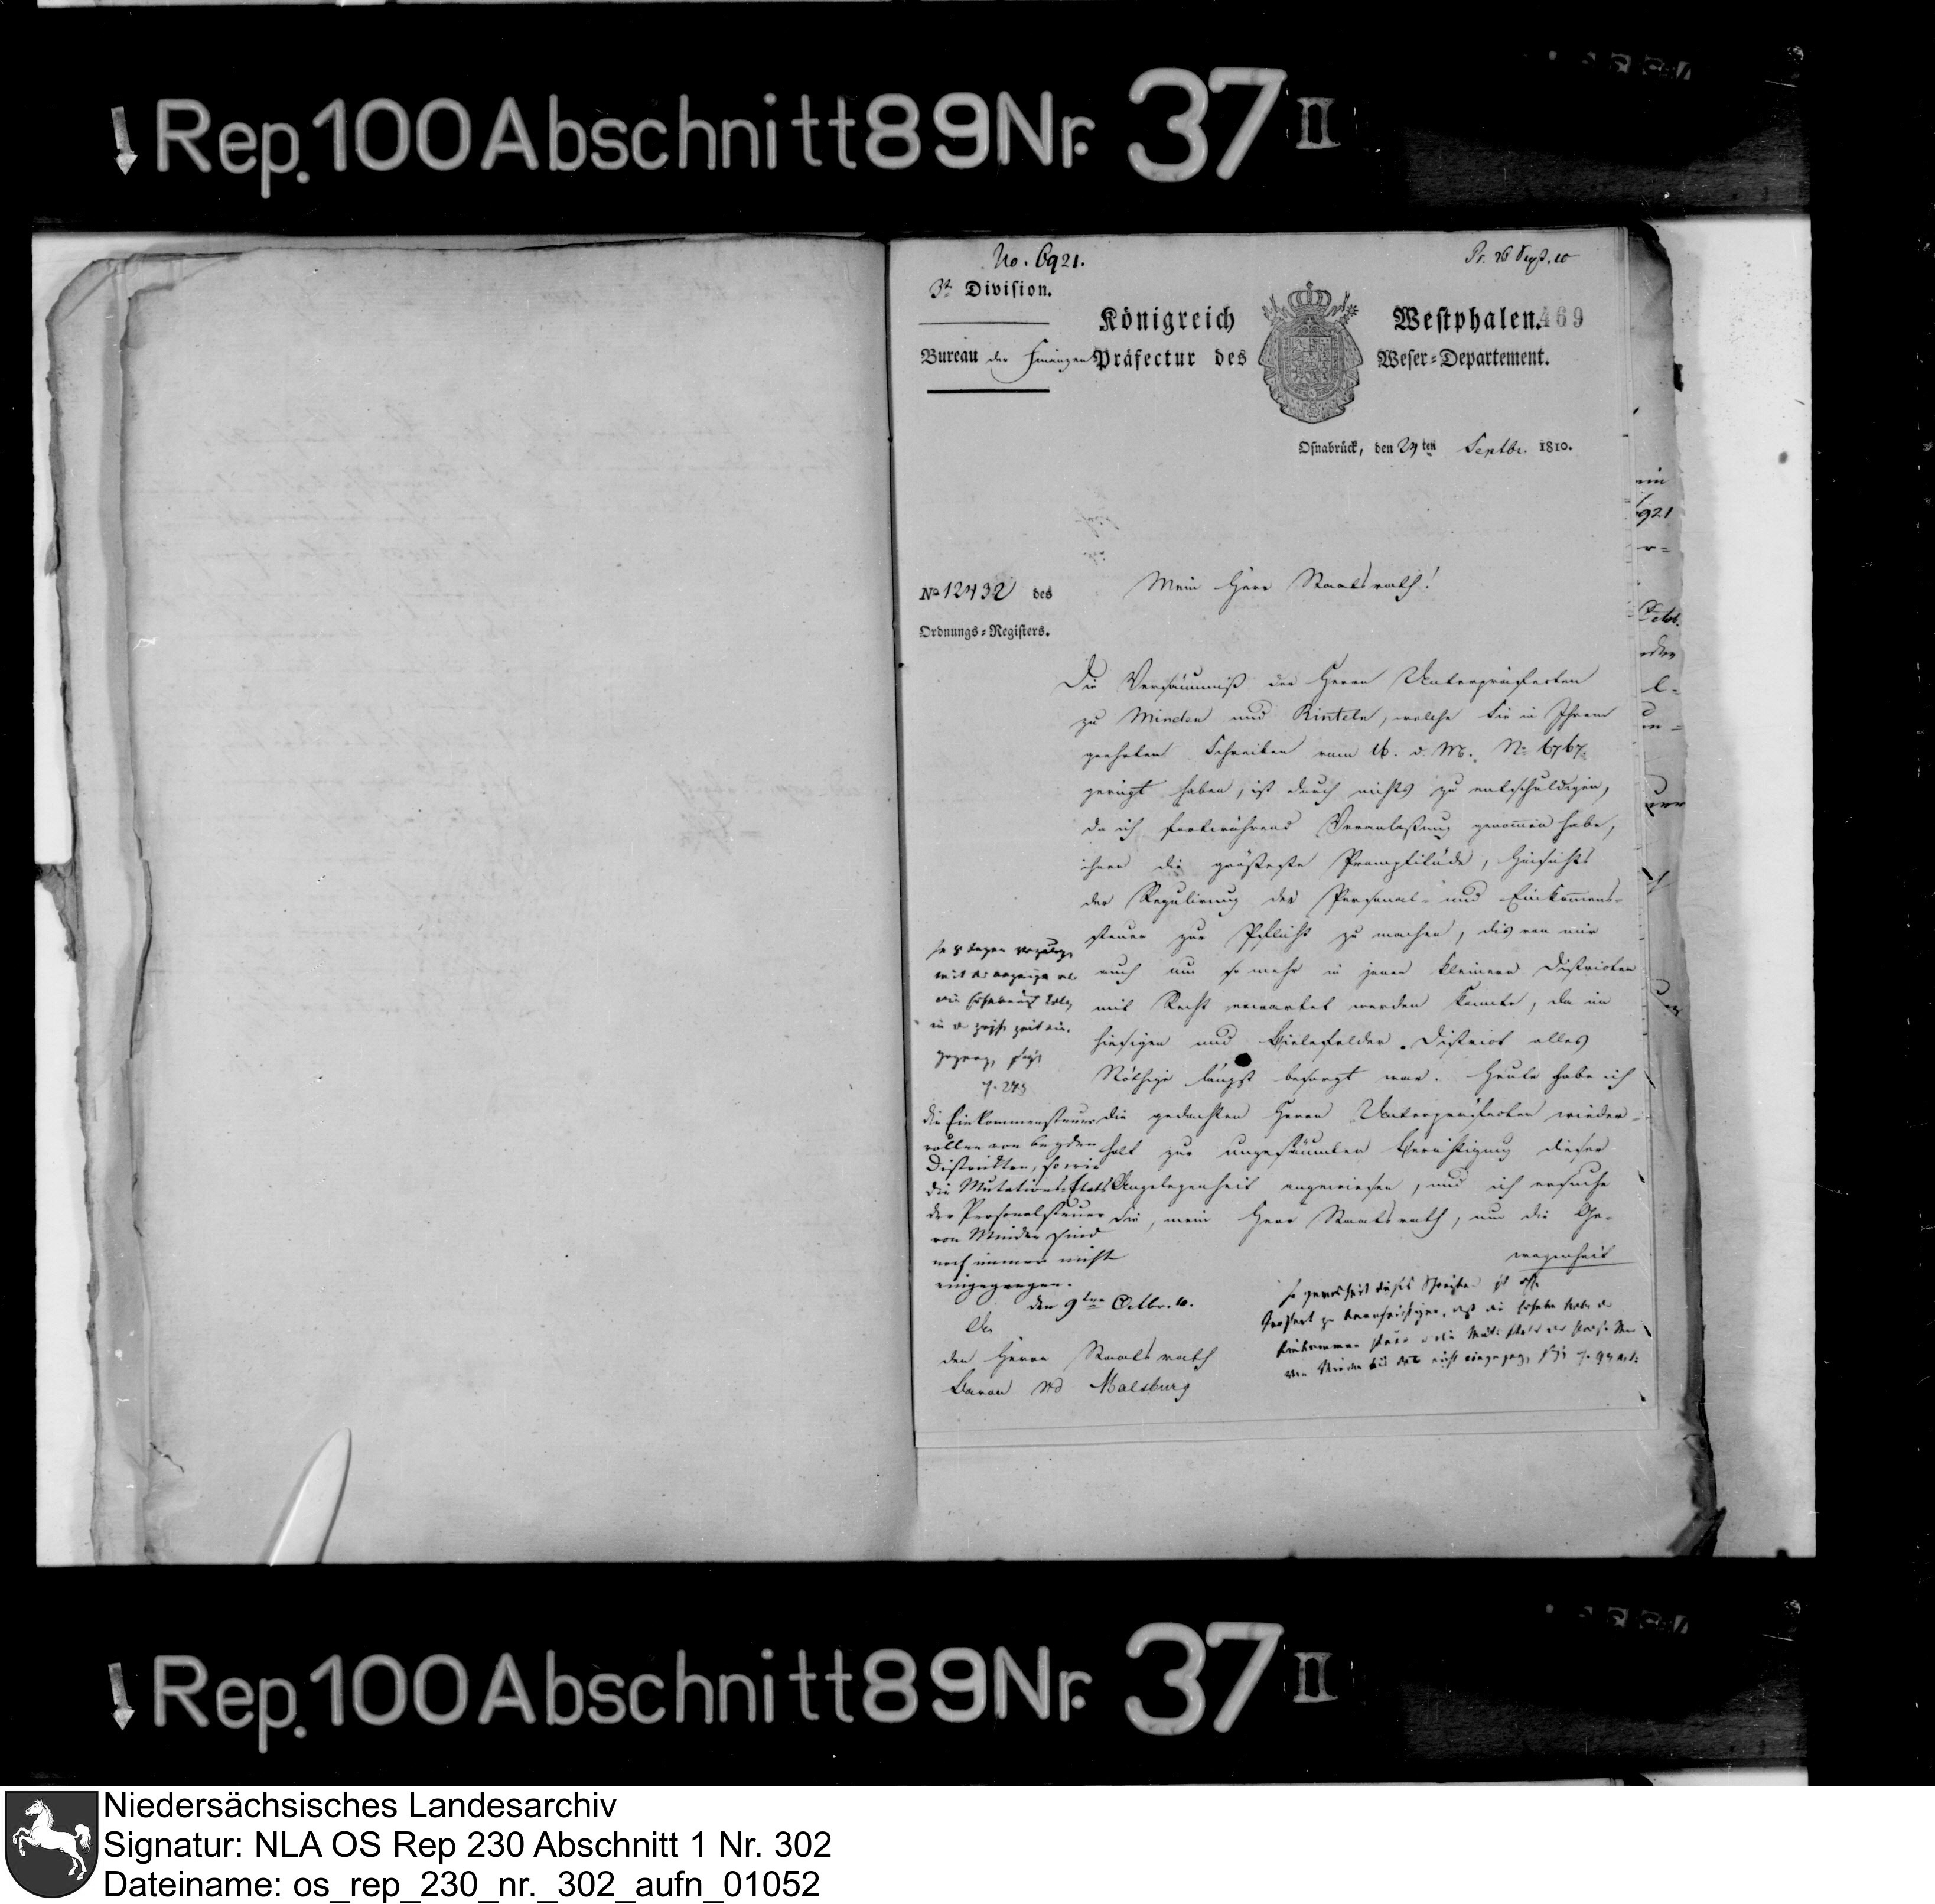 Rep. 100 Abschnitt 89 Nr. 37 II
No. 6921.
Pr. 26 Sept. 10
3te Division.
Königreich Westphalen.
469
Bureau der Finanzen
Präfectur des Weser=Departement.
Osnabrück, den 24 ten Septbr. 1810.
No 12432 des
Ordnungs=Registers.
Mein Herr Staatsrath!
Die Versäumniß der Herrn Unterpräfecten
zu Minden und Rinteln, welche Sie in Ihrem
geehrten Schreiben vom 16. d. M. No 6767.
gerügt haben, ist durch nichts zu entschuldigen,
da ich fortwährend Veranlaßung genommen habe,
ihnen die größeste Promptitüde, Hinsichts
der Regulirung der Personal- und Einkommens-
steuer zur Pflicht zu machen, dis von mir
auch um so mehr in jenen kleinern Districten
mit Recht erwartet werden konnte, da im
hiesigen und Bielefelder District alles
Nöthige längst besorgt war. Heute habe ich
die gedachten Herrn Unterpräfecten wieder-
holt zur ungesäumten Berichtigung dieser
Angelegenheit angewiesen, und ich ersuche
Sie, mein Herr Staatsrath, um die Ge-
wogenheit
die Einkommensteuer
rollen von beyden
Districkten, so wie
die Mutations Etats
der Personalsteuer
von Minden sind
noch immer nicht
eingegangen.
den 9ten Octbr. 10.
An
den Herrn Staatsrath
Baron v d Malsburg
Rep. 100 Abschnitt 89 Nr. 37 II
Niedersächsisches Landesarchiv
Signatur: NLA OS Rep 230 Abschnitt 1 Nr. 302
Dateiname: os_rep_230_nr._302_aufn_01052